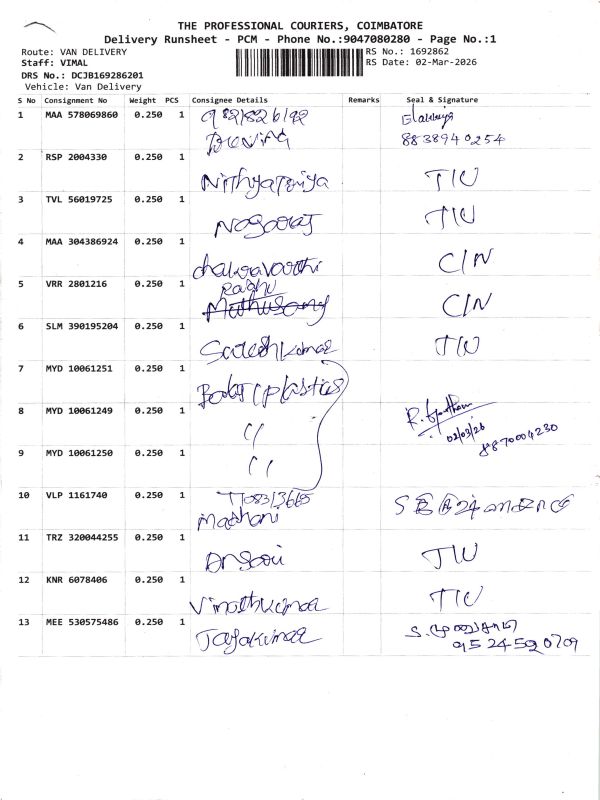 THE PROFESSIONAL COURIERS, COIMBATORE
Delivery Runsheet - PCM - Phone No.:9047080280 - Page No.:1
Route: VAN DELIVERY
RS No.: 1692862
Staff: VIMAL
RS Date: 02-Mar-2026
DRS No.: DCJB169286201
Vehicle: Van Delivery
S No Consignment No Weight PCS Consignee Details Remarks Seal & Signature
1 MAA 578069860 0.250 1
8838940254
2 RSP 2004330 0.250 1 Nithyapriya TIU
3 TVL 56019725 0.250 1 Nagaraj TIU
4 MAA 304386924 0.250 1 chakravarthi C/N
5 VRR 2801216 0.250 1 Raghu C/N
6 SLM 390195204 0.250 1 Sateshkumar TIU
7 MYD 10061251 0.250 1 plastics
8 MYD 10061249 0.250 1 " 02/03/26
9 MYD 10061250 0.250 1 "
10 VLP 1161740 0.250 1
11 TRZ 320044255 0.250 1 TIU
12 KNR 6078406 0.250 1 Vinothkumar TIU
13 MEE 530575486 0.250 1 Jayakumar
9524590709